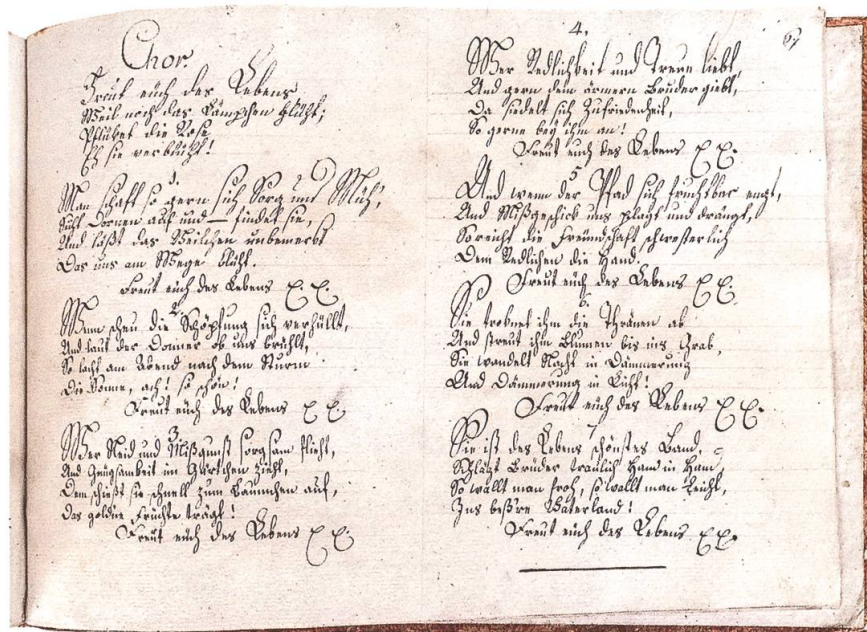 Chor.
Freut euch des Lebens
Weil noch das Lämpchen glüht;
Pflücket die Rose
Eh sie verblüht!
1.
Man schaft so gern sich Sorg und Müh',
Sucht Dornen auf und — findet sie,
Und läßt das Veilchen unbemerkt
Das uns am Wege blüht.
Freut euch des Lebens
2.
Wenn scheu die Schöpfung sich verhüllt,
Und laut der Donner ob uns brüllt,
So lacht am Abend nach dem Sturm
Die Sonne, ach! so schön!
Freut euch des Lebens
3
Wer Neid und Mißgunst sorgsam flieht,
Und Gnügsamkeit im Gärtchen zieht,
Dem schießt sie schnell zum Bäumchen auf,
Das goldne Früchte trägt!
Freut euch des Lebens
4.
67
Wer Redlichkeit und Treue liebt,
Und gern dem ärmern Bruder giebt,
Da siedelt sich Zufriedenheit,
So gerne bey ihm an!
Freut euch des Lebens
5
Und wenn der Pfad sich furchtbar engt,
Und Mißgeschick uns plagt und drängt,
So reicht die Freundschaft schwesterlich
Dem Redlichen die Hand.
Freut euch des Lebens
6.
Sie troknet ihm die Thränen ab
Und streut ihm Blumen bis ins Grab,
Sie wandelt Nacht in Dämmerung
Und Dämmerung in Licht!
Freut euch des Lebens
7
Sie ist des Lebens schönstes Band,
Brüder traulich Hand in Hand,
So wallt man froh, so wallt man leicht,
Ins beßre Vaterland!
Freut euch des Lebens